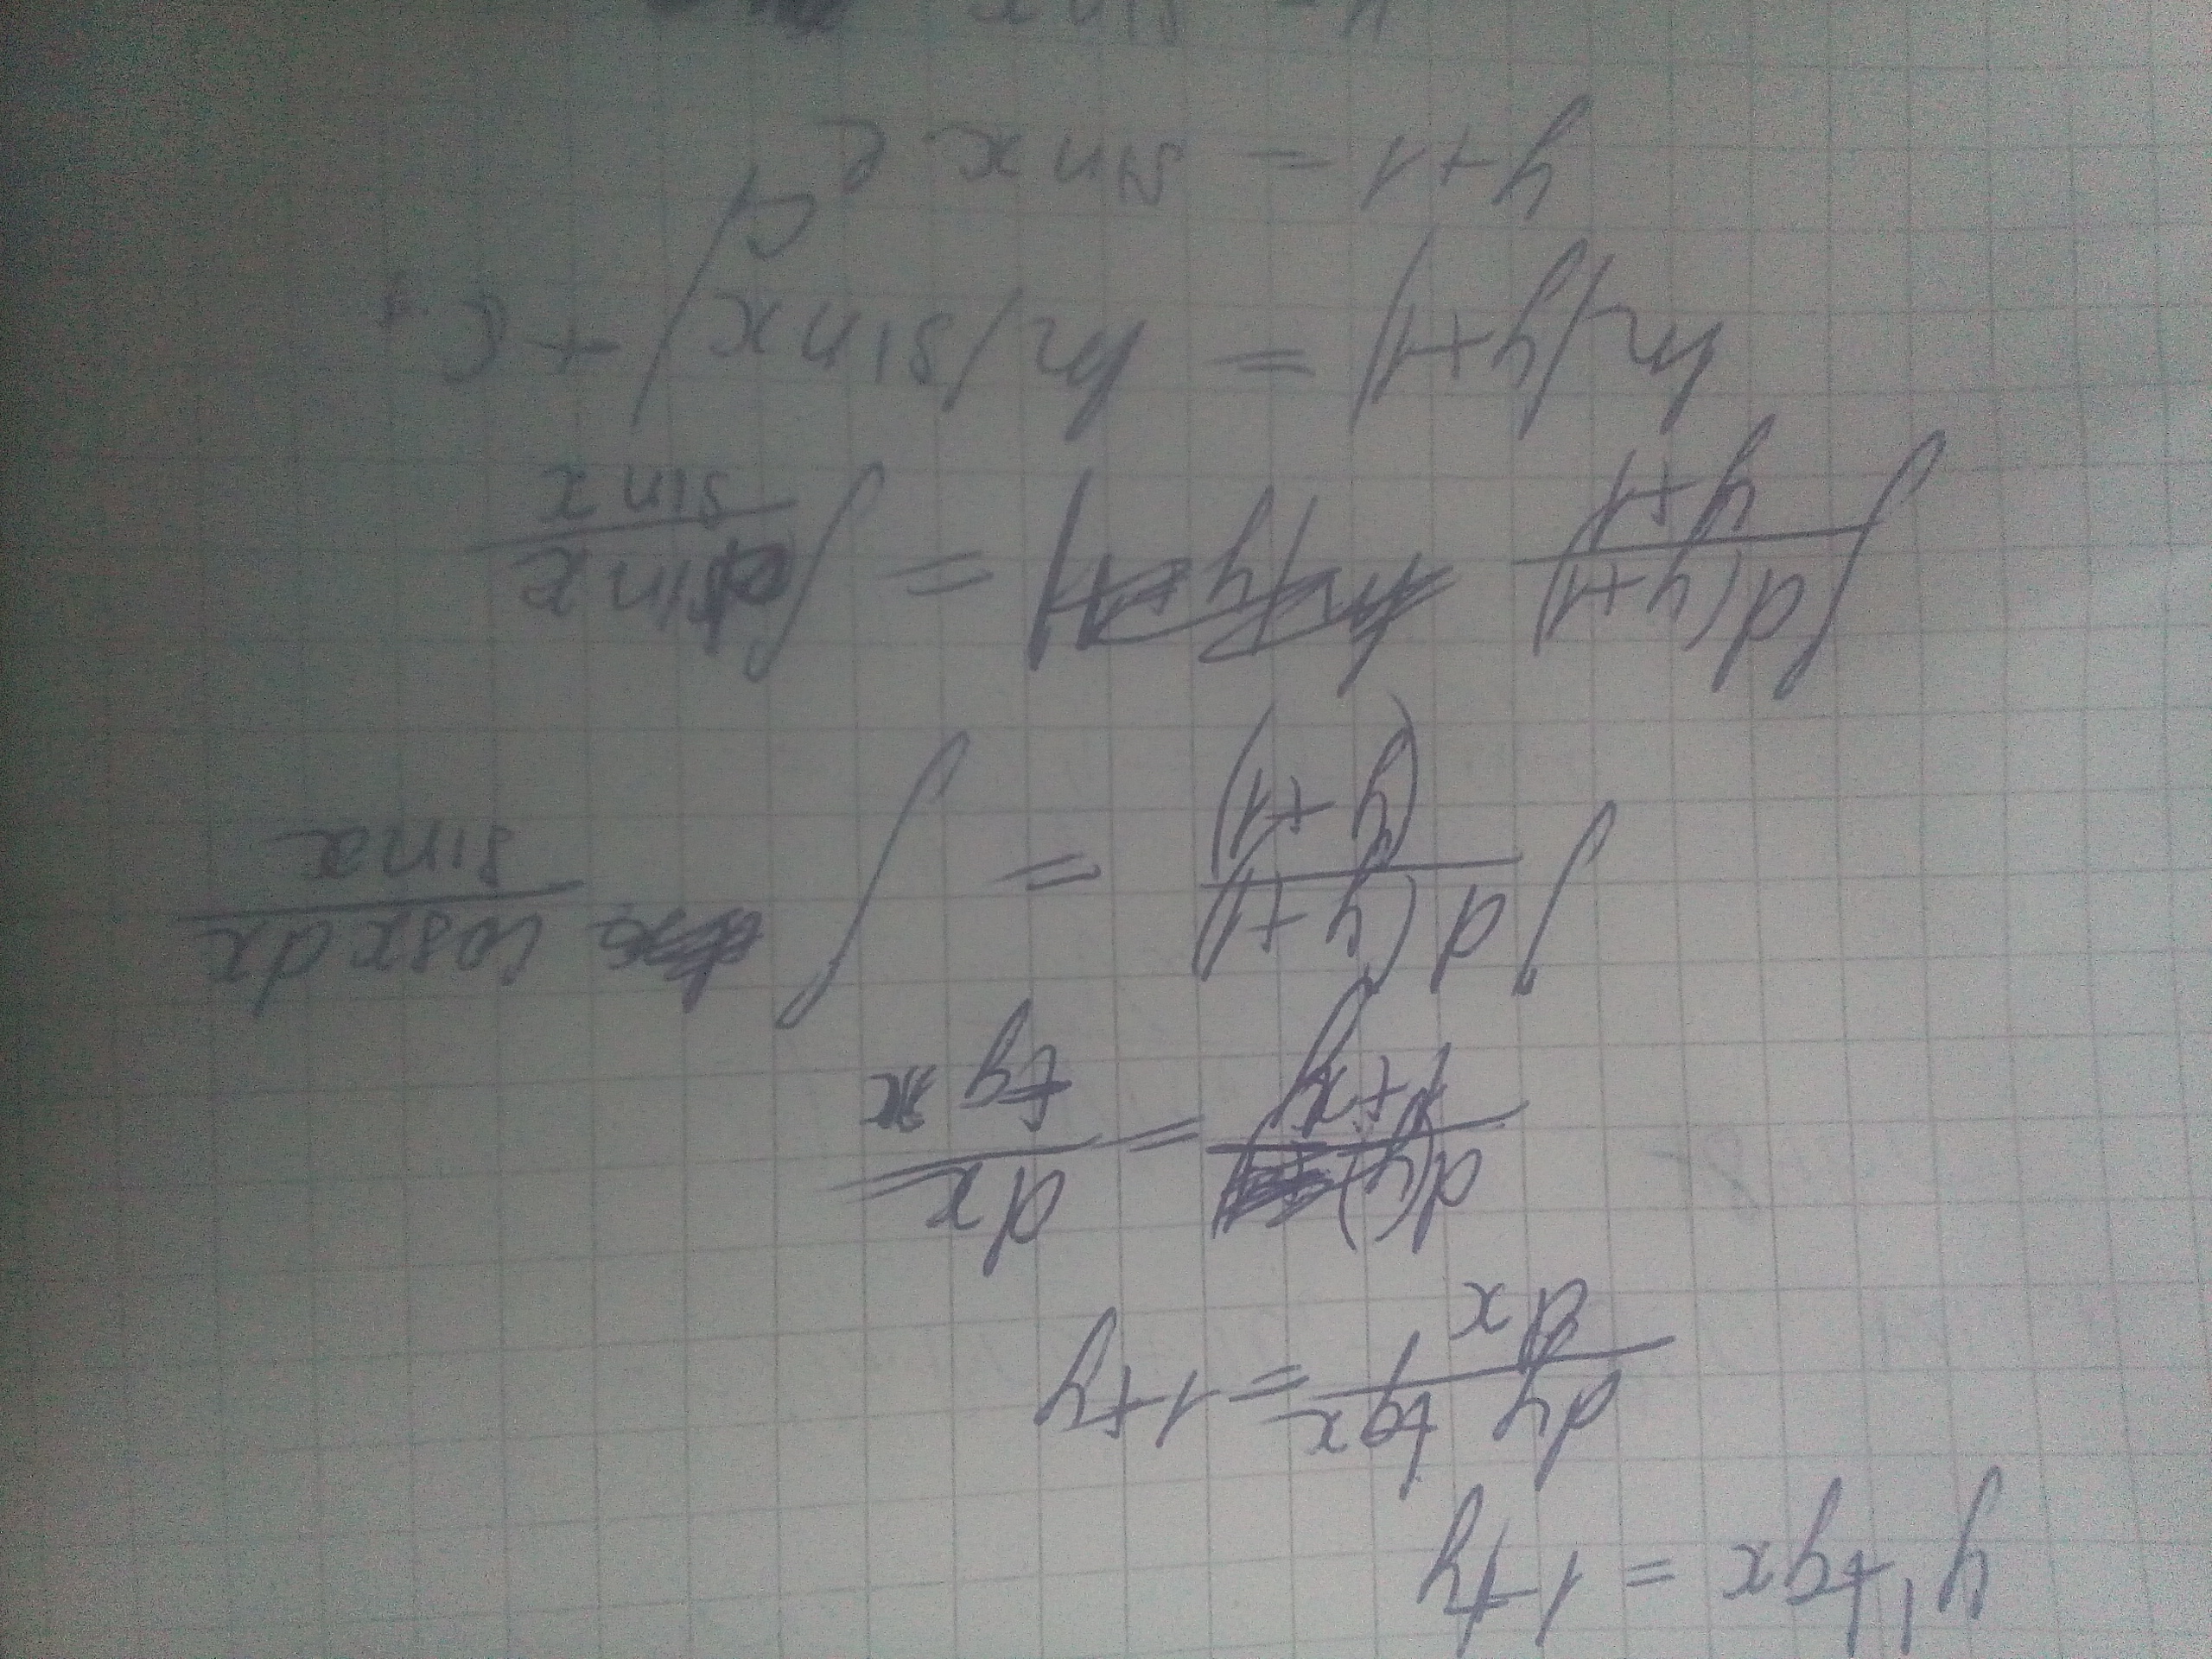 y' tgx = 1+y
dy tgx / dx = 1+y
d(y) / 1+y = dx / tg x
∫ d(y+1) / (y+1) = ∫ cosx dx / sinx
∫ d(y+1) / y+1 = ∫ dsinx / sinx
ln|y+1| = ln|sinx| + C
y+1 = sinx · e^C
y = sinx